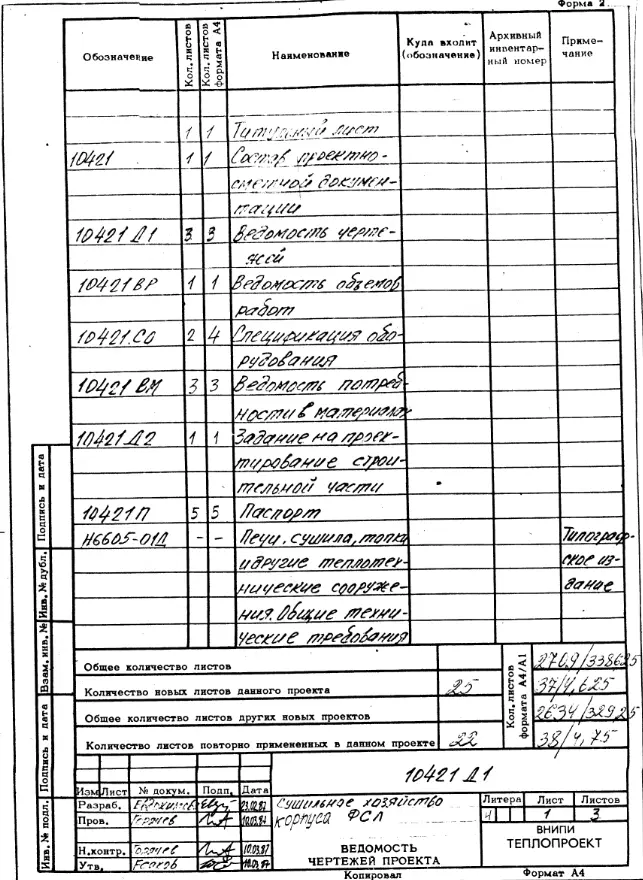 Форма 2
Обозначение Кол. листов Кол. листов формата А4 Наименование Куда входит (обозначение) Архивный инвентарный номер Примечание
1 1 Титульный лист
10421 1 1 Состав проектно-
сметной докумен-
тации
10421 Д1 3 3 Ведомость черте-
жей
10421 ВР 1 1 Ведомость объемов
работ
10421.СО 2 4 Спецификация обо-
рудования
10421 ВМ 3 3 Ведомость потреб-
ности в материалах
10421 Д2 1 1 Задание на проек-
тирование строи-
тельной части
10421 П 5 5 Паспорт
Н6605-01Д – – Печи, сушила, топки Типограф-
и другие теплотех- ское из-
нические сооруже- дание
ния. Общие техни-
ческие требования
Общее количество листов
Количество новых листов данного проекта 25
Общее количество листов других новых проектов
Количество листов повторно примененных в данном проекте 22
Кол. листов формата А4/А1
37/4,625
38/4,75
10421 Д1
Изм Лист № докум. Подп. Дата
Разраб. Евдокимов 23.02.87
Пров. Горячев 10.03.87
Н.контр. Горячев 10.03.87
Утв. 10.03.87
Сушильное хозяйство
корпуса ФСЛ
ВЕДОМОСТЬ
ЧЕРТЕЖЕЙ ПРОЕКТА
Литера Лист Листов
1 3
ВНИПИ
ТЕПЛОПРОЕКТ
Копировал Формат А4
Подпись и дата
Инв. № дубл.
Взам. инв. №
Подпись и дата
Инв. № подл.